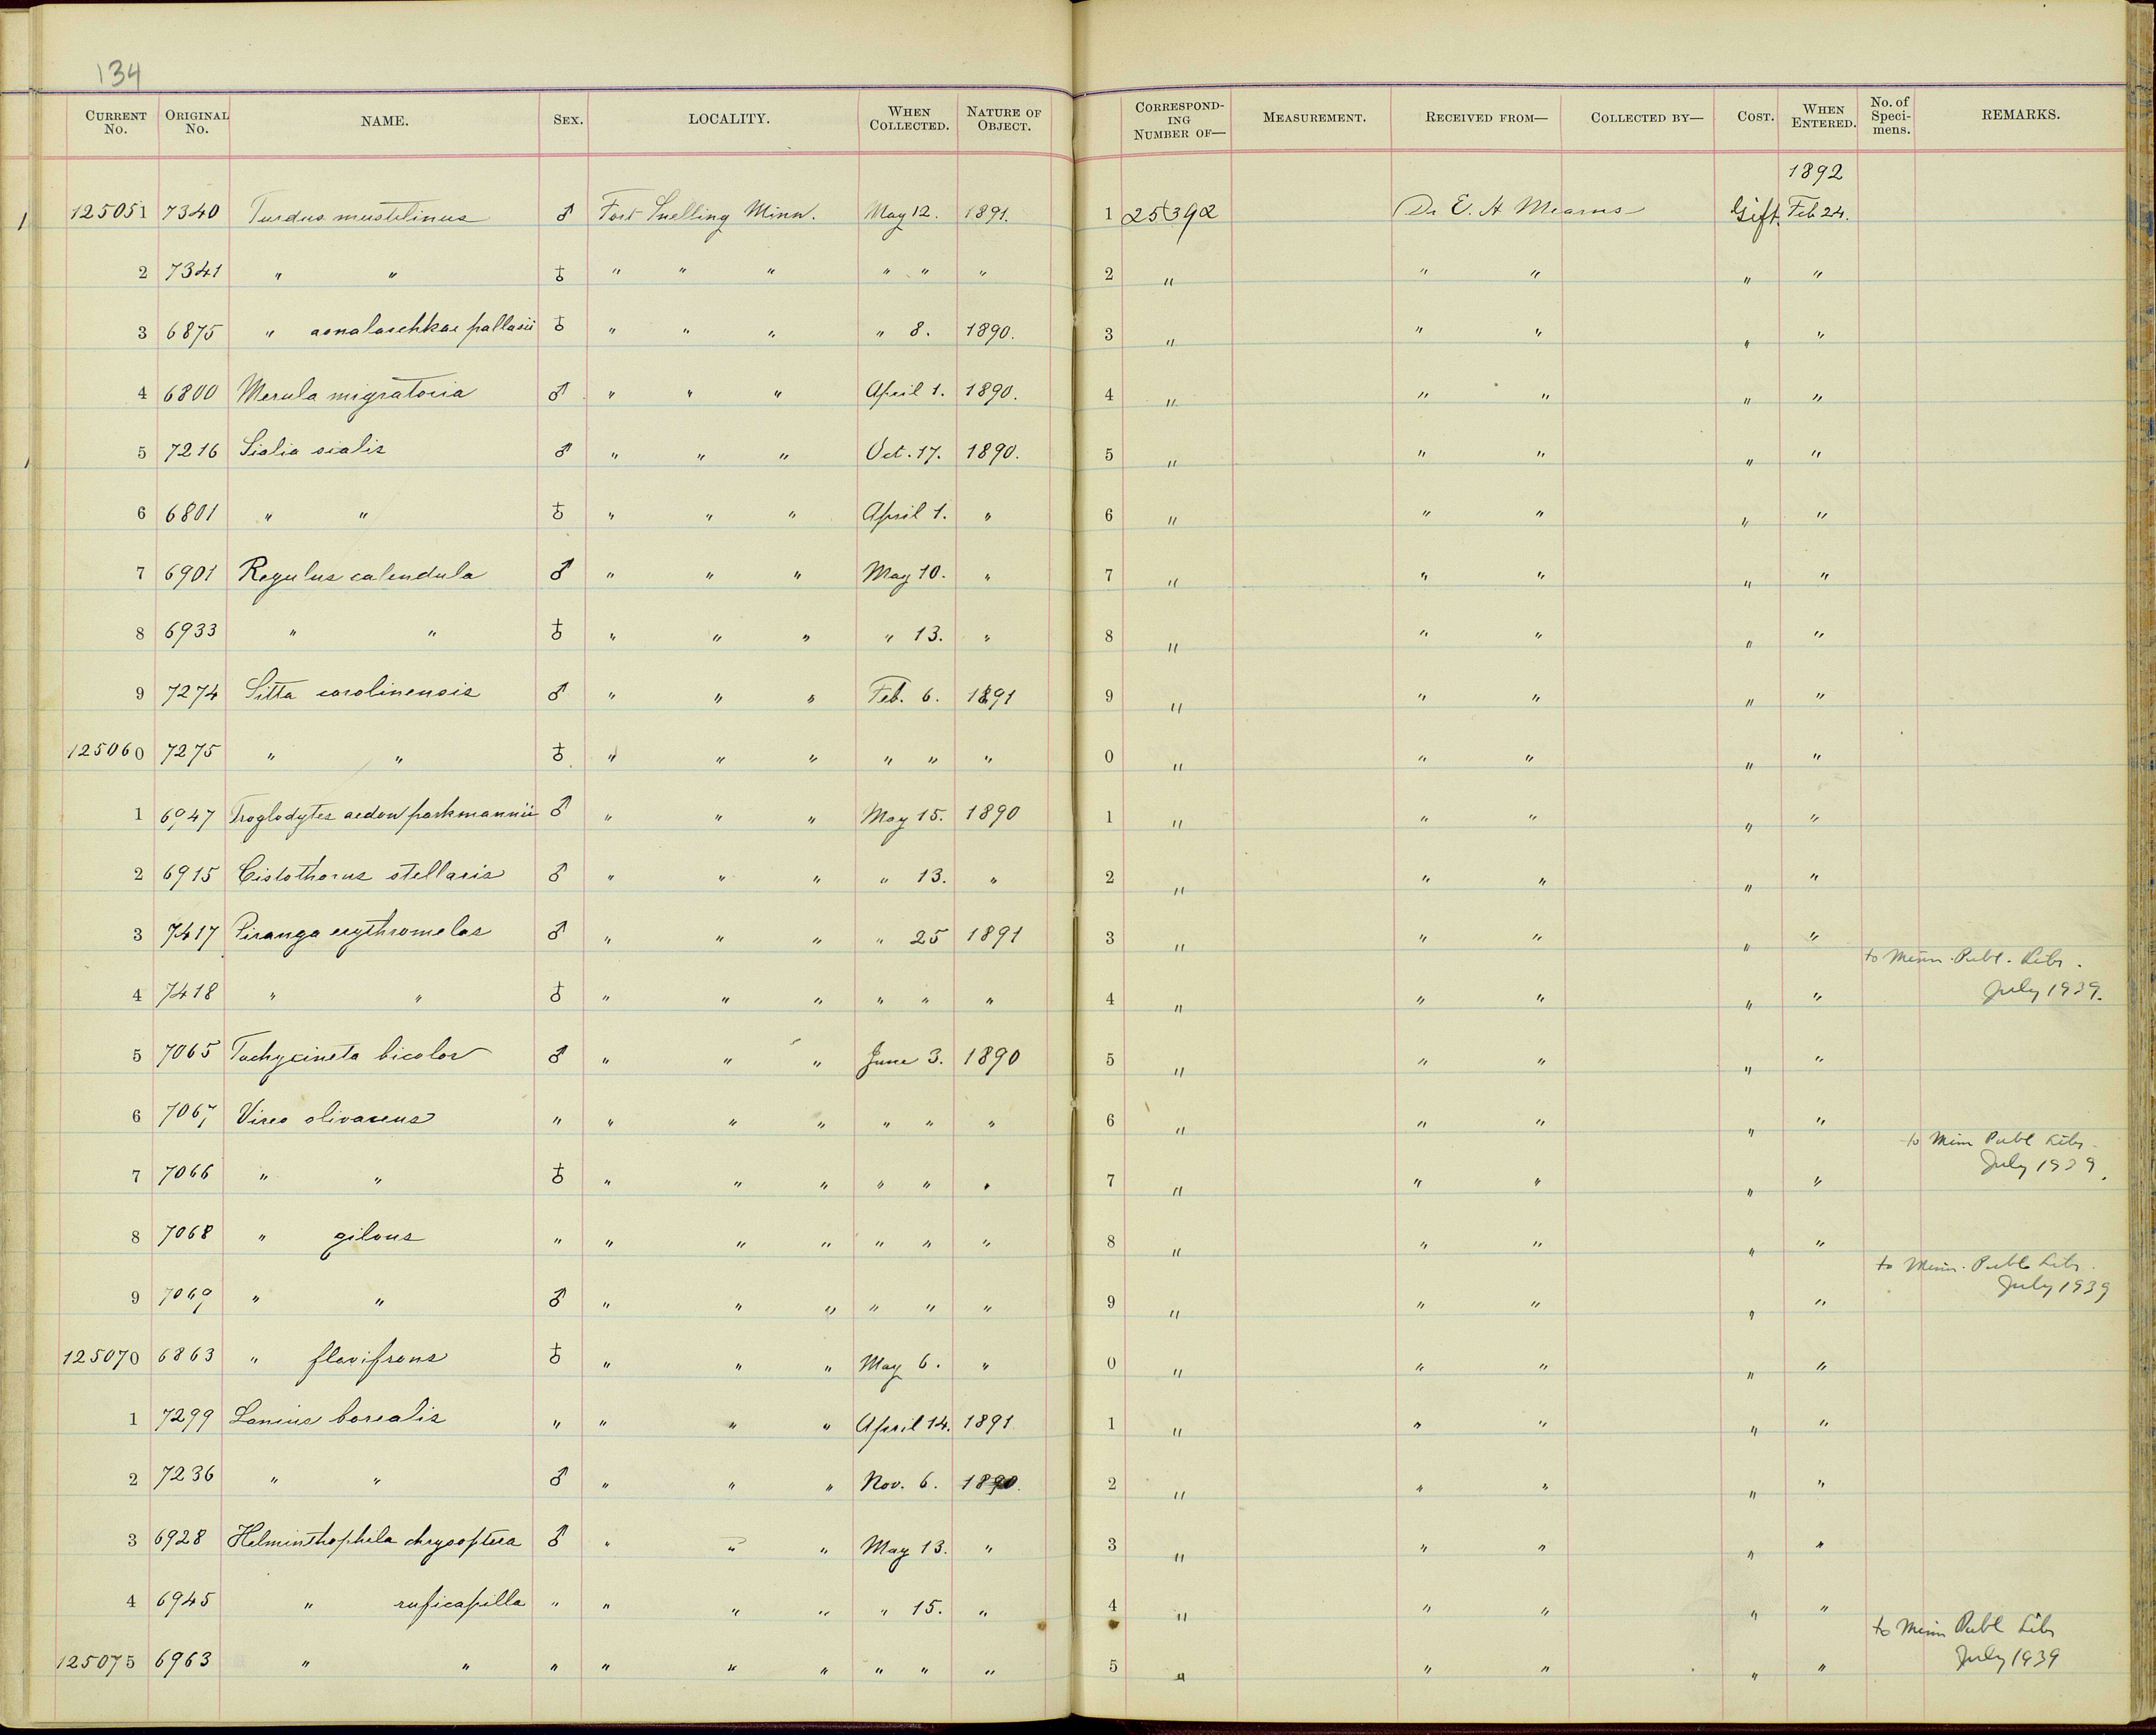 134
CURRENT No. ORIGINAL No. NAME. SEX. LOCALITY. WHEN COLLECTED. NATURE OF OBJECT. CORRESPONDING NUMBER OF— MEASUREMENT. RECEIVED FROM— COLLECTED BY— COST. WHEN ENTERED. No. of Specimens. REMARKS.
1892
125051 7340 Turdus mustelinus ♂ Fort Snelling Minn. May 12. 1891. 1 25392 Dr E. A Mearns Gift. Feb 24.
2 7341 " " ♀ " " " " " " 2 " " " " "
3 6875 " aonalaschkae pallasii ♀ " " " " 8. 1890. 3 " " " " "
4 6800 Merula migratoria ♂ " " " April 1. 1890. 4 " " " " "
5 7216 Sialia sialis ♂ " " " Oct. 17. 1890. 5 " " " " "
6 6801 " " ♀ " " " April 1. " 6 " " " " "
7 6901 Regulus calendula ♂ " " " May 10. " 7 " " " " "
8 6933 " " ♀ " " " " 13. " 8 " " " " "
9 7274 Sitta carolinensis ♂ " " " Feb. 6. 1891 9 " " " " "
125060 7275 " " ♀ " " " " " " 0 " " " " "
1 6947 Troglodytes aedon parkmannii ♂ " " " May 15. 1890 1 " " " " "
2 6915 Cistothorus stellaris ♂ " " " " 13. " 2 " " " " "
3 7417 Piranga erythromelas ♂ " " " " 25 1891 3 " " " " "
to Minn. Publ. Libr.
4 7418 " " ♀ " " " " " " 4 " " " " " July 1939.
5 7065 Tachycineta bicolor ♂ " " " June 3. 1890 5 " " " " "
6 7067 Vireo olivaceus " " " " " " " 6 " " " " "
to Minn Publ Libr.
7 7066 " " ♀ " " " " " " 7 " " " " " July 1939.
8 7068 " gilvus " " " " " " " 8 " " " " "
to Minn. Publ Libr.
9 7069 " " ♂ " " " " " " 9 " " " " " July 1939
125070 6863 " flavifrons ♀ " " " May 6. " 0 " " " " "
1 7299 Lanius borealis " " " " April 14. 1891. 1 " " " " "
2 7236 " " ♂ " " " Nov. 6. 1890. 2 " " " " "
3 6928 Helminthophila chrysoptera ♂ " " " May 13. " 3 " " " " "
4 6945 " ruficapilla " " " " " 15. " 4 " " " " "
to Minn Publ Libr
125075 6963 " " " " " " " " " 5 " " " " " July 1939